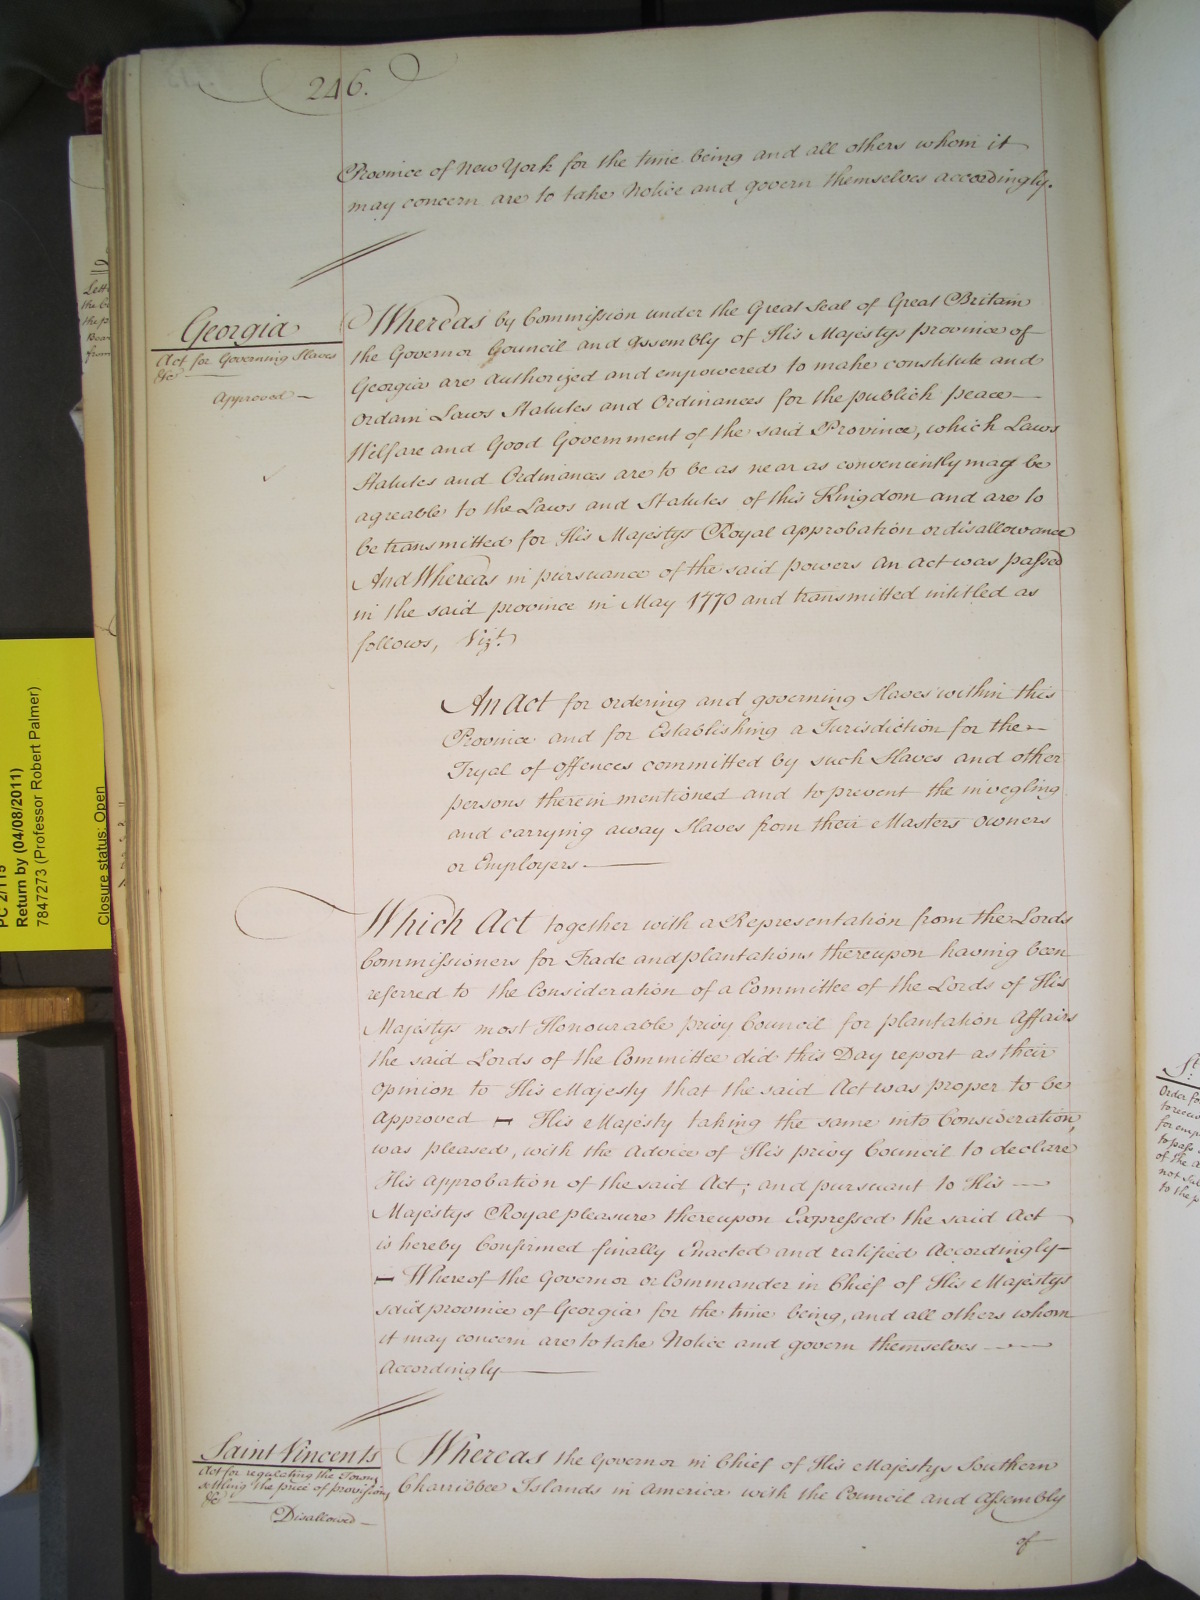 246.
Province of New York for the time being and all others whom it
may concern are to take Notice and govern themselves accordingly.
Georgia
Act for Governing Slaves
&c
Approved
Whereas by Commission under the Great Seal of Great Britain
the Governor Council and Assembly of His Majestys province of
Georgia are Authorized and empowered to make constitute and
Ordain Laws Statutes and Ordinances for the publick peace
Welfare and Good Government of the said Province, which Laws
Statutes and Ordinances are to be as near as conveniently may be
agreable to the Laws and Statutes of this Kingdom and are to
be transmitted for His Majestys Royal approbation or disallowance
And Whereas in pursuance of the said powers an act was passed
in the said province in May 1770 and transmitted intitled as
follows, Vizt.
An Act for ordering and governing Slaves within this
Province and for Establishing a Jurisdiction for the
Tryal of offences committed by such Slaves and other
persons therein mentioned and to prevent the invegling
and carrying away Slaves from their Masters Owners
or Employers
Which Act together with a Representation from the Lords
Commissioners for Trade and plantations thereupon having been
referred to the Consideration of a Committee of the Lords of His
Majestys most Honourable privy Council for plantation Affairs
the said Lords of the Committee did this Day report as their
Opinion to His Majesty that the said Act was proper to be
Approved — His Majesty taking the same into Consideration,
was pleased, with the Advice of His privy Council to declare
His Approbation of the said Act; and pursuant to His
Majestys Royal pleasure thereupon Expressed the said Act
is hereby Confirmed finally Enacted and ratified Accordingly
— Whereof the Governor or Commander in Chief of His Majestys
said province of Georgia for the time being, and all others whom
it may concern are to take Notice and govern themselves
Accordingly
Saint Vincents
Act for regulating the Town,
settling the price of provision,
&c
Disallowed
Whereas the Governor in Chief of His Majestys Southern
Charribbee Islands in America with the Council and Assembly
of
PC 2/115
Return by (04/08/2011)
7847273 (Professor Robert Palmer)
Closure status: Open
Order fo
for emp
to pass
of the A
to the p